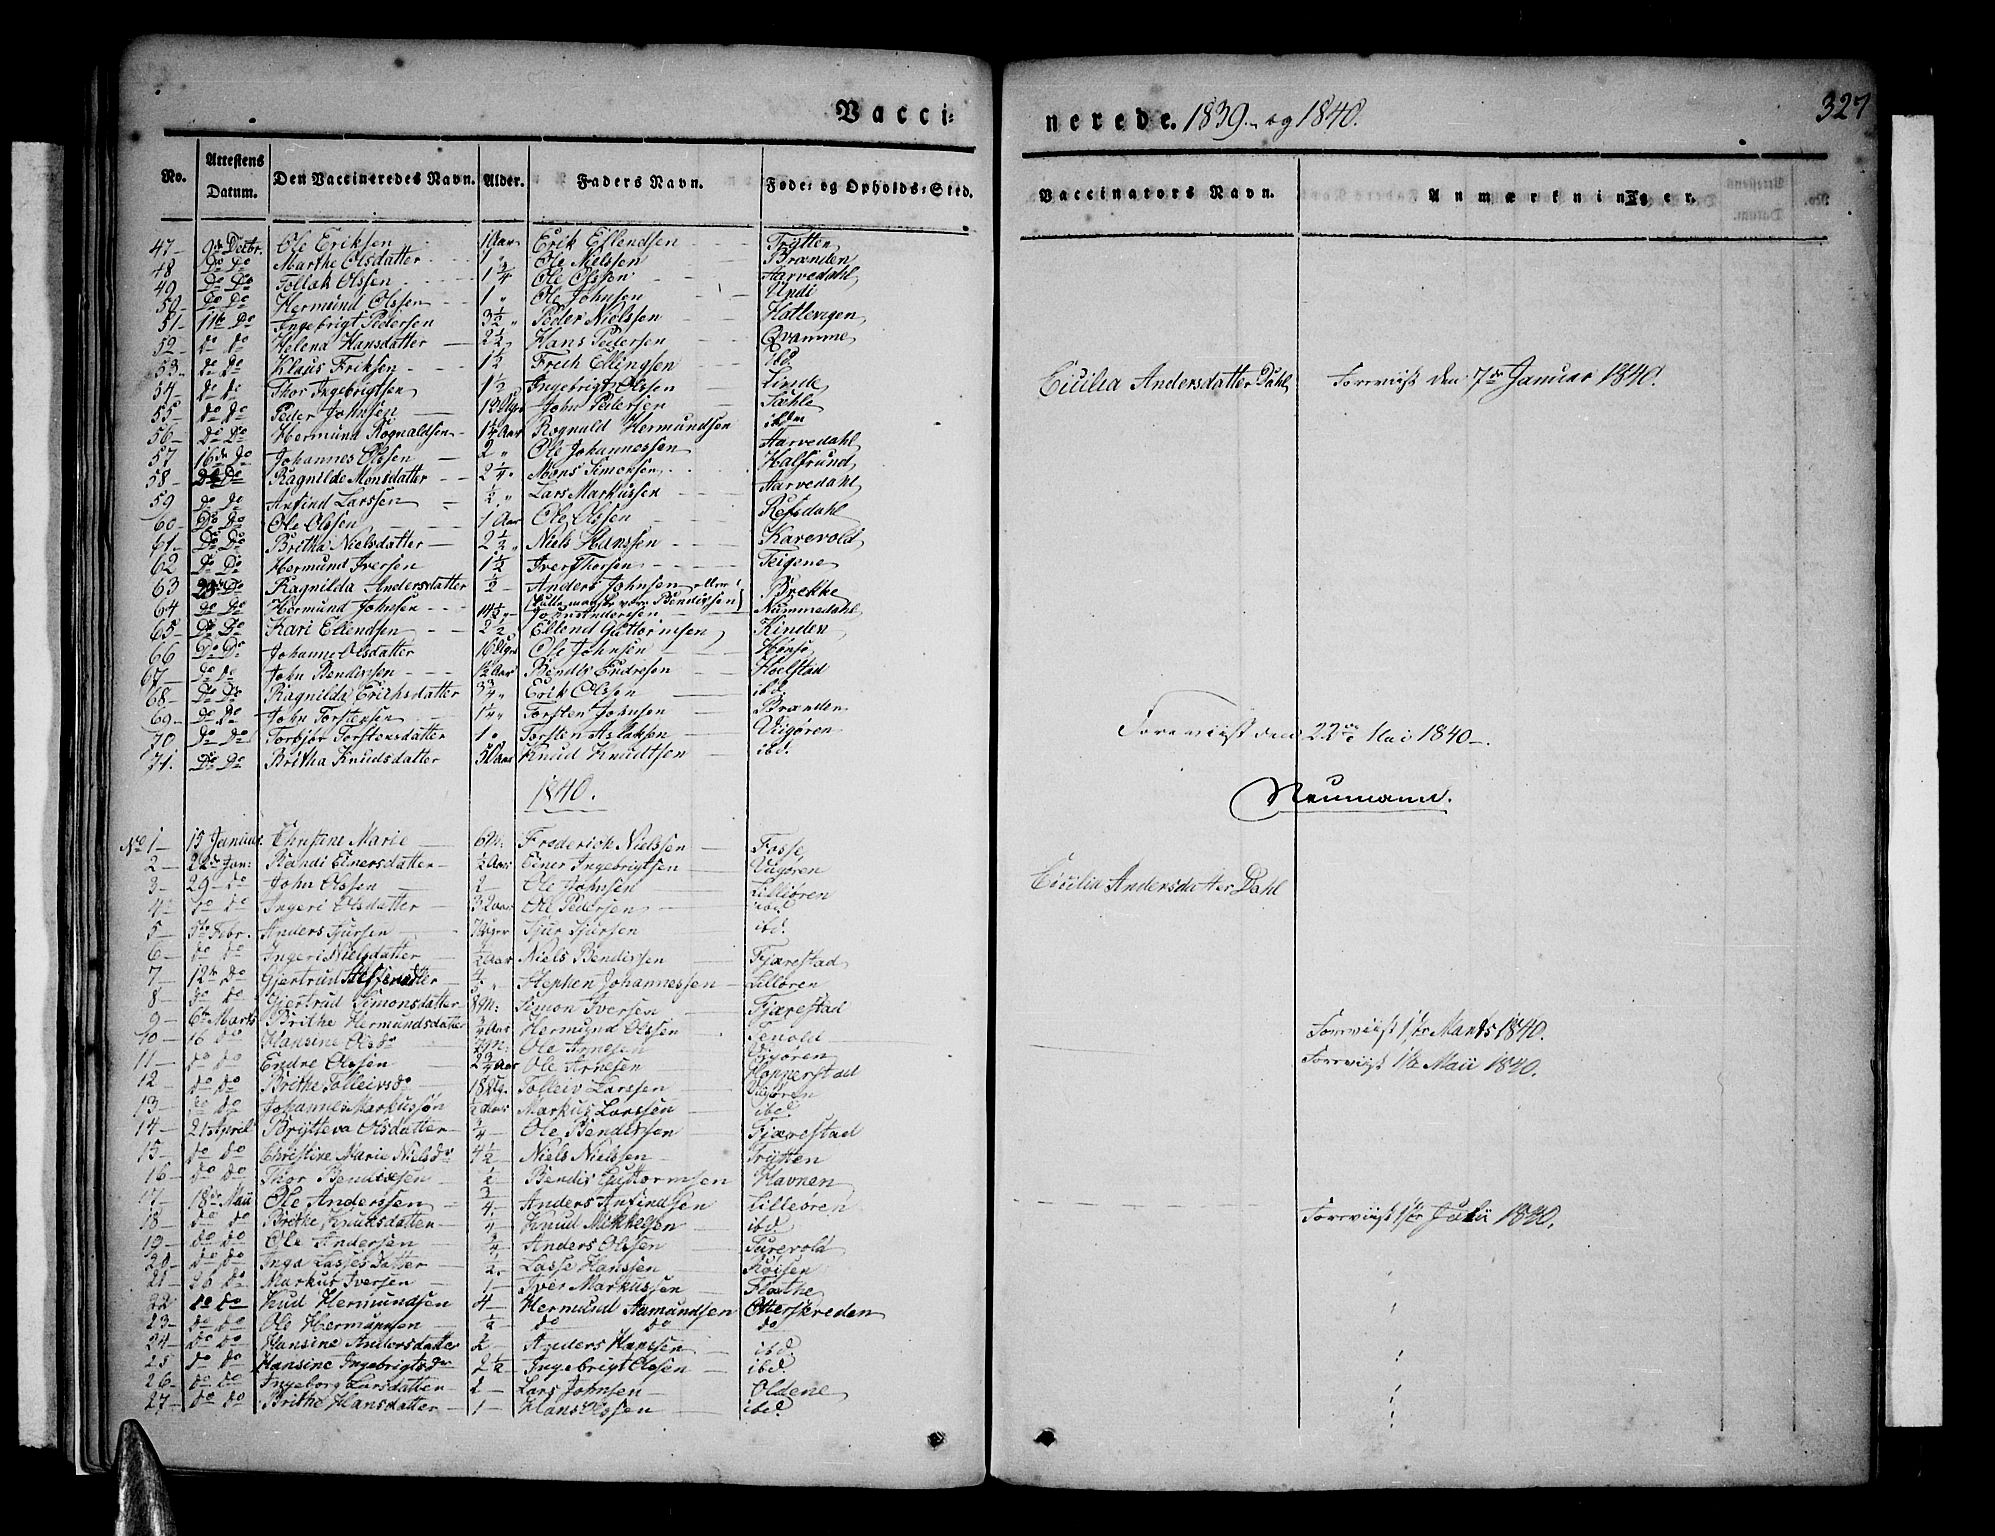 Vacci-
nerede. 1839. og 1840.
327
No. Attestens Datum. Den Vaccineredes Navn. Alder. Faders Navn. Føde- og Opholds-Sted.
Vaccinators Navn. Anmærkninger.
47 9de Decbr. Ole Eriksen 1 Aar Erik Ellendsen Frøtten
48 Do Do Marthe Olsdatter Ole Nielssen Brænden
49 Do Do Tollak Olssen 1 3/4 Ole Olssen Aarvedahl
50 Do Do Hermund Olssen 1 " Ole Johnsen Undi
51 11te Do Ingebrigt Pedersen 3 1/2 " Peder Nielssen Hatlevigen
52 do do Helena Hansdatter 2 1/2 Hans Pedersen Qvamme
53 do do Klaus Friksen 1 1/2 Frich Ellingsen ibd.
54 do do Thor Ingebrigtsen 1 1/2 Ingebrigt Olssen Linde
Cicilia Andersdatter Dahl Foreviist den 7de Januar 1840.
55 do do Peder Johnsen 13 Ugr John Pedersen Sæhle
56 Do Do Hermund Rognaldsen 1 1/4 Aar Rognald Hermundsen ibdm
57 16de do Johannes Olssen 2 " Ole Johannessen Aarvedahl
58 Do Ragnilde Monsdatter 2 1/4 Mons Simonsen Halsrund
59 Do Do Anfind Larssen 1/2 " Lars Markussen Aarvedahl
60 Do Do Ole Olssen 1 Aar Ole Olssen Refsdahl
61 Do Do Britha Nielsdatter 2 1/2 " Niels Hanssen Karevold
62 Do Do Hermund Iversen 1 1/2 Iver Thorsen Teigene
63 Do Ragnilda Andersdatter 1/2 Anders Johnsen Brekke
64 do do Hermund Johnsen John Andersen Nummedahl
65 Do Do Kari Ellendsen 2 1/2 Ellend Guttormsen Kinden
66 Do Do Johanne Olsdatter 16 Ugr Ole Johnsen Hønsi
67 do do John Bendixsen 1/2 Aar Bendix Endresen Hoelstad
68 Do Do Ragnilda Erichsdatter 3/4 " Erik Olssen ibd.
69 Do Do John Torstensen Torsten Johnsen Brænden
70 Do Do Torbjør Torstensdatter 1 " Torsten Aslaksen Viigøren
Foreviist den 22de Mai 1840.
71. Do Do Britha Knudsdatter Knud Knudtsen ibd.
1840.
Neumann.
No 1 15 Januar Christine Marie 6 M: Frederich Nielssen Fosse
2 22de Jan: Randi Einersdatter 1/2 Aar Einer Ingebrigtsen Viigøren
3 29 do John Olssen 2 Ole Johnsen Lilliøren
Cicilia Andersdatter Dahl
4 do do Ingeri Olsdatter Ole Pedersen ibd.
5 5te Febr. Anders Sjursen Sjur Sjursen ibd.
6 do do Ingeri Nielsdatter 1/2 Aar Niels Bendixsen Fjærestad
7 12te do Gjertrud Stephen Johannessen Lilløren
8 do do Gjertrud Simonsdatter 8 M: Simon Iversen Fjærestad
9 6te Marts Brithe Hermundsdatter 3/4 Aar Hermund Olssen Tenold
Foreviist 1ste Marts 1840.
10 16 do Hansine Olsdr Ole Arnesen Viigøren
11 do do Endre Olssen 2 3/4 Aar Ole Arnesen Hopperstad
Foreviist 1te Maii 1840.
12 do do Brithe Tolleivsdr 18 Ug. Tolleiv Larssen Viigøren
13 do do Johannes Markussøn 1/2 Aar Markus Larssen ibd.
14 21 April Brytteva Olsdatter 3/4 Ole Bendixsen Fjærestad
15 do do Christine Marie Nielsdr 4 1/2 Niels Nielssen Frytten
16 do do Thor Bendixsen 1/2 Bendix Guttormsen Havnen
17 18de Maii Ole Anderssen 3/4 Anders Anfindsen Lilleøren
18 do do Brithe Knudsdatter Knud Mikkelsen ibd.
Foreviist 1ste Julii 1840.
19 do do Ole Andersen Anders Olssen Surevold
20 do do Inga Lasses Datter 1/2 Lasse Hanssen
21 26 do Markus Iversen 1 Iver Markussen Flathe
22 do do Knud Hermundsen 4 Hermund Aamundsen Otterskreden
23 do do Ole Hermansen 1/2 do do do
24 do do Hansine Andersdatter 2 Anders Hanssen ibd.
25 do do Hansine Ingebrigtsdr 2 1/2 Ingebrigt Olssen ibd.
26 do do Ingeborg Larsdatter 2 Lars Johnsen Oldene
27 do do Brithe Hansdatter 1 Hans Olssen ibid.